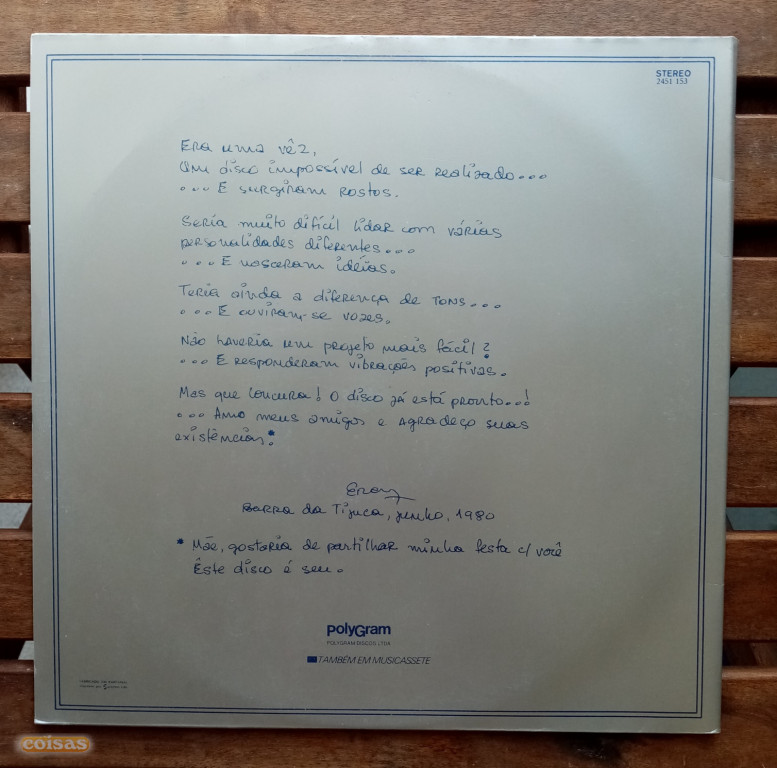 STEREO
2451 153
Era uma vêz,
Um disco impossível de ser realizado...
... E surgiram rostos.
Seria muito difícil lidar com várias
personalidades diferentes...
... E nasceram idéias.
Teria ainda a diferença de tons...
... E ouviram-se vozes.
Não haveria um projeto mais fácil?
... E responderam vibrações positivas.
Mas que loucura! O disco já está pronto...!
... Amo meus amigos e agradeço suas
existências.*
Barra da Tijuca, junho, 1980
* Mãe, gostaria de partilhar minha festa c/ você
Êste disco é seu.
polyGram
POLYGRAM DISCOS LTDA
TAMBÉM EM MUSICASSETE
coisas